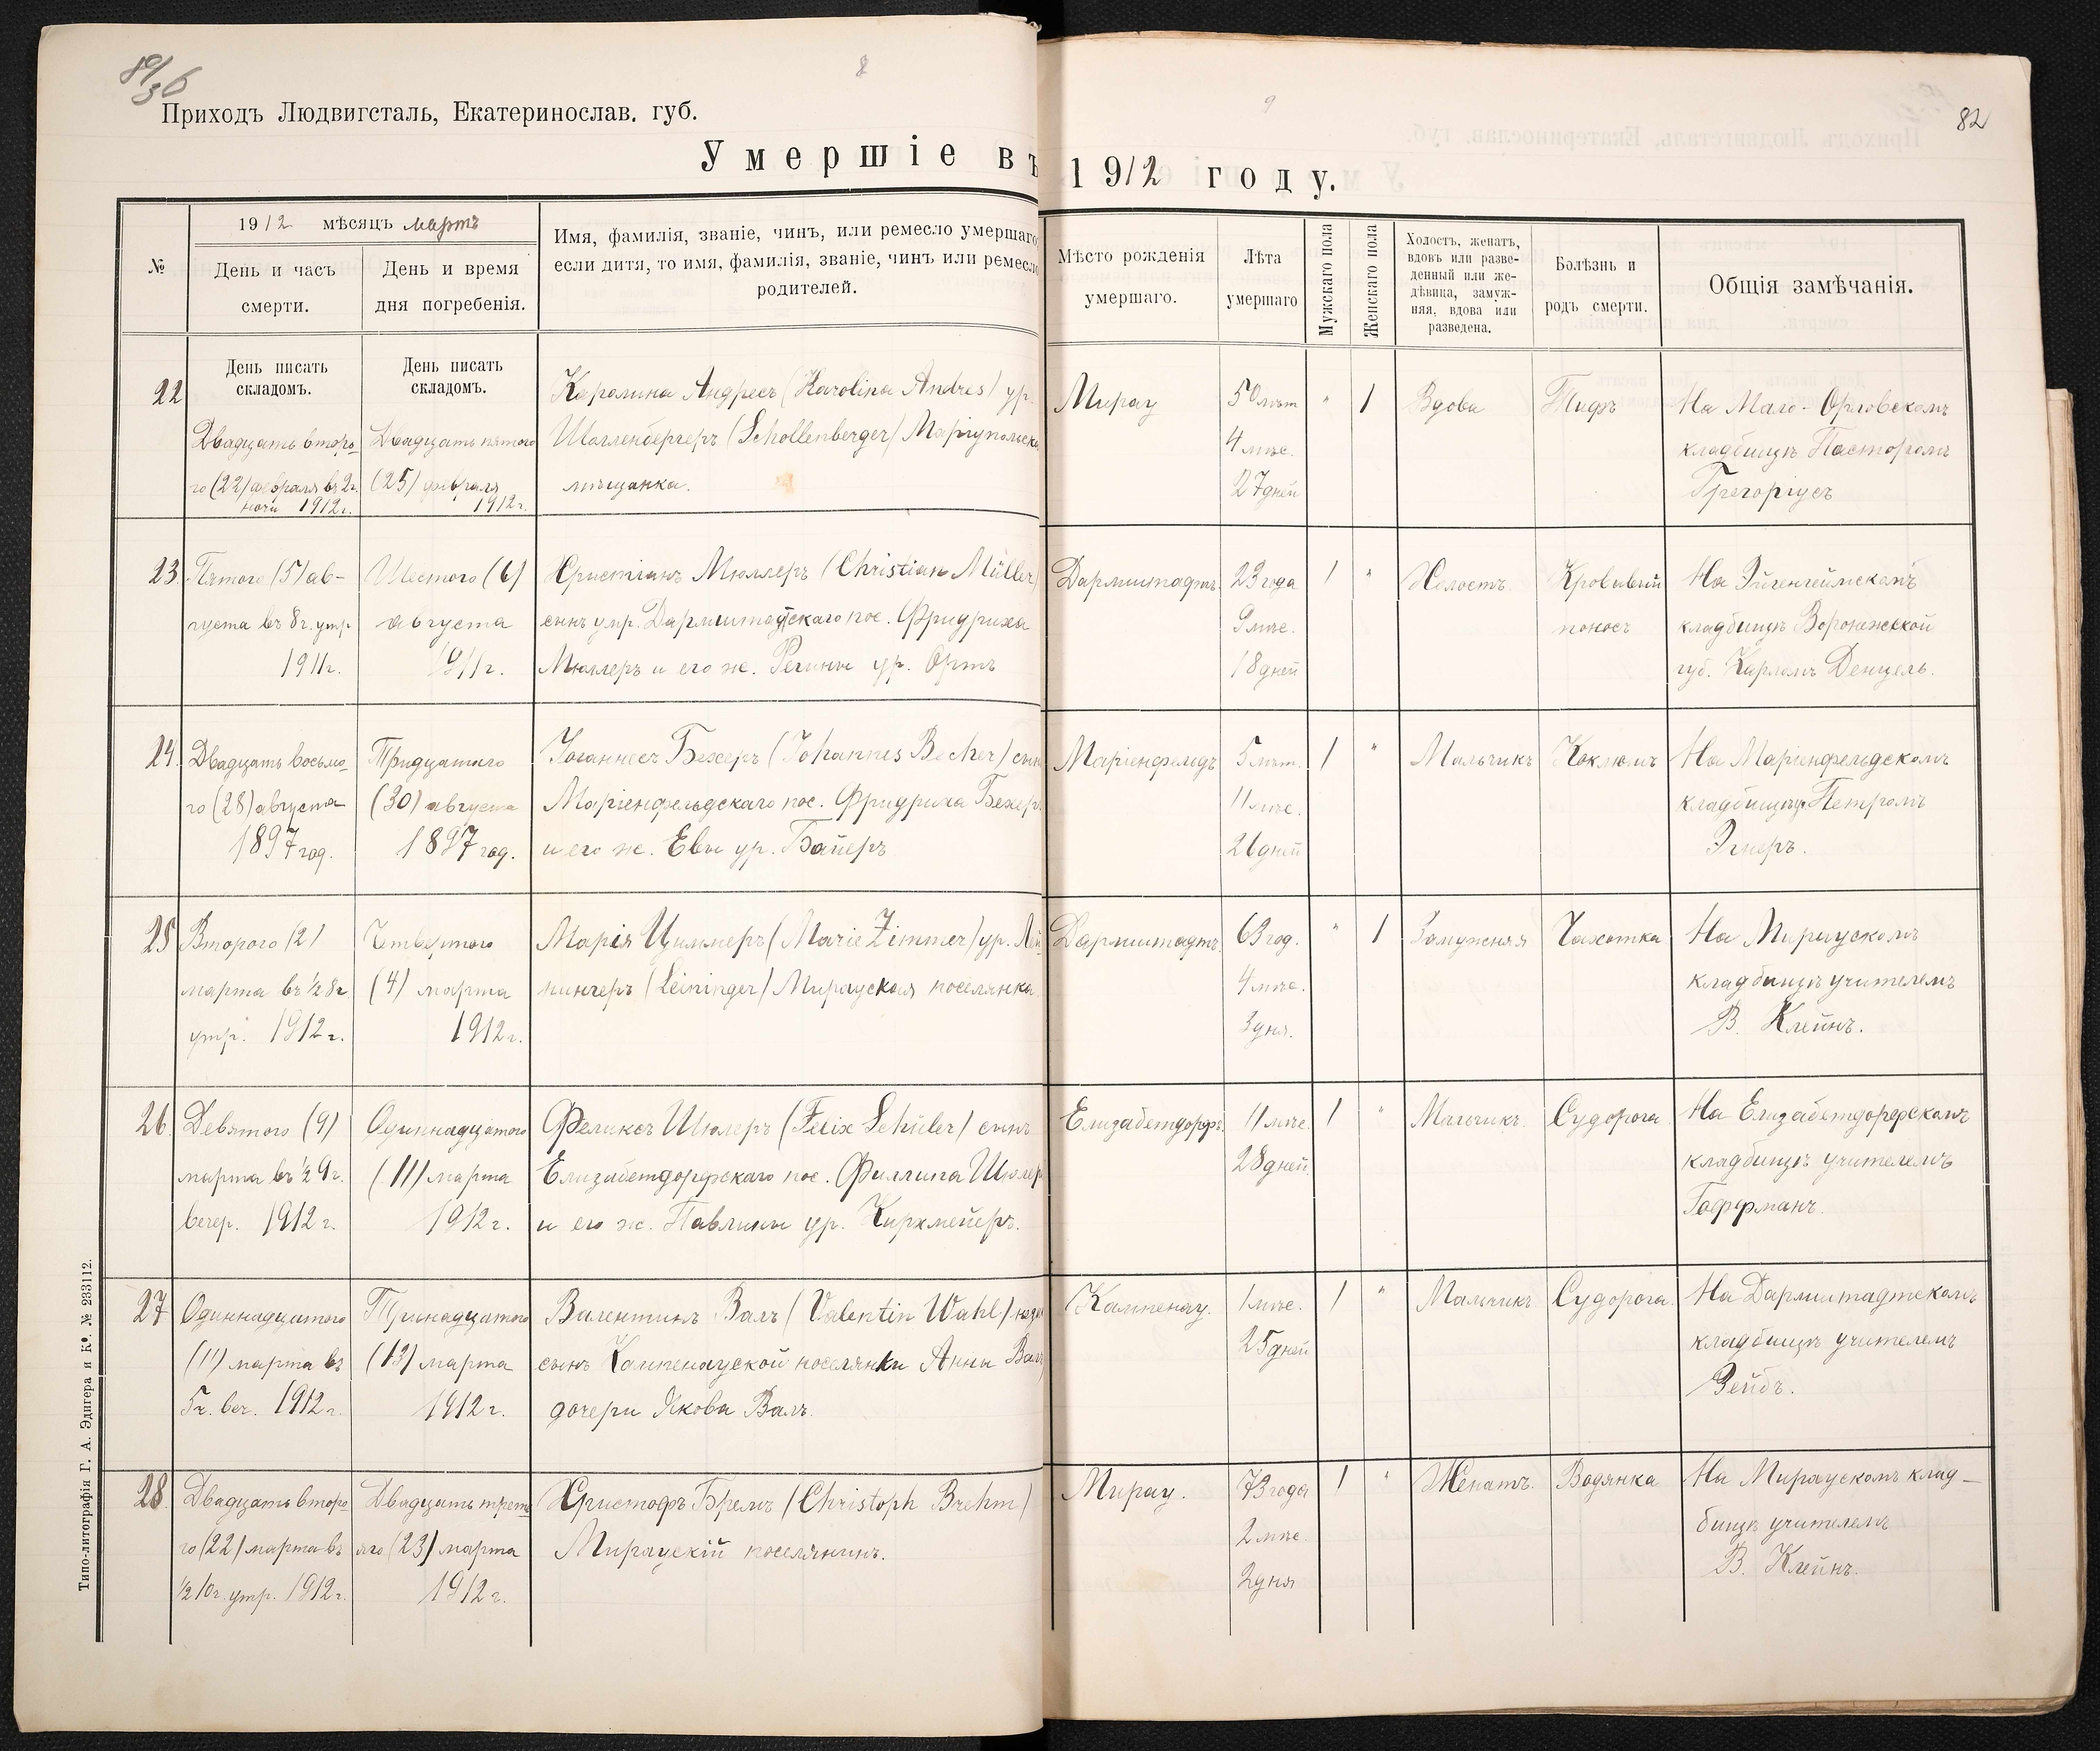 Приходъ Людвигсталь, Екатеринослав. губ.
82
Умершіе въ 1912 году.
№
1912 мѣсяцъ мартъ
День и часъ
смерти.
День и время
дня погребенія.
Имя, фамилія, званіе, чинъ, или ремесло умершаго
если дитя, то имя, фамилія, званіе, чинъ или ремесло
родителей.
Мѣсто рожденія
умершаго.
Лѣта
умершаго
Мужскаго пола
Женскаго пола
Холостъ, женатъ,
вдовъ или разве-
денный или же-
дѣвица, замуж-
няя, вдова или
разведена.
Болѣзнь и
родъ смерти.
Общія замѣчанія.
День писать
складомъ.
День писать
складомъ.
22
Двадцать второ-
го (22) февраля въ 2ч.
ночи 1912г.
Двадцать пятого
(25) февраля
1912г.
Каролина Андресъ (Karolina Andres) ур.
Шолленбергеръ (Schollenberger) Маріупольска
мѣщанка.
Мирау
50 лѣт
4 мѣс.
27 дней
" 1
Вдова
Тифъ
На Мало-Орловскомъ
кладбищѣ Пасторомъ
Грегоріусъ
23.
Пятого (5) ав-
густа въ 8ч. утр.
1911г.
Шестого (6)
августа
1911г.
Христіанъ Мюллеръ (Christian Müller)
сынъ умр. Дармштадтскаго пос. Фридриха
Мюллеръ и его ж. Регины ур. Ортъ
Дармштадтъ.
23 года
9 мѣс.
18 дней
1 "
Холостъ.
Кровавый
поносъ
На Эйгенгеймскомъ
кладбищѣ Воронежской
губ. Карломъ Денцель.
24.
Двадцать восьмо-
го (28) августа
1897 год.
Тридцатаго
(30) августа
1897 год.
Іоганнесъ Бехеръ (Johannes Becher) сын
Маріенфельдскаго пос. Фридриха Бехеръ
и его ж. Евы ур. Байеръ
Маріенфельдъ
5 лѣт.
11 мѣс.
26 дней
1 "
Мальчикъ
Коклюшъ
На Маріенфельдскомъ
кладбищѣ Петромъ
Эгнеръ.
25
Второго (2)
марта въ ½ 8ч
утр. 1912г.
Четвертого
(4) марта
1912г.
Марія Циммеръ (Marie Zimmer) ур. Лей-
нингеръ (Leininger) Мирауская поселянка
Дармштадтъ.
63 год.
4 мѣс.
3 дня.
" 1
Замужняя
Чахотка
На Мираускомъ
кладбищѣ учителемъ
В. Клейнъ.
26.
Девятого (9)
марта въ ½ 9ч.
вечер. 1912г.
Одиннадцатого
(11) марта
1912г.
Феликсъ Шюлеръ (Felix Schüler) сынъ
Елизабетдорфскаго пос. Филлипа Шюлер
и его ж. Павлины ур. Киркмейеръ.
Елизабетдорфъ.
11 мѣс.
28 дней.
1 "
Мальчикъ.
Судорога.
На Елизабетдорфскомъ
кладбищѣ учителемъ
Гоффманъ.
27
Одиннадцатого
(11) марта въ
5ч. веч. 1912г.
Тринадцатого
(13) марта
1912г.
Валентинъ Валъ (Valentin Wahl)
сынъ Кампенауской поселянки Анны Валъ
дочери Якова Валъ.
Кампенау.
1 мѣс.
25 дней
1 "
Мальчикъ.
Судорога.
На Дармштадтскомъ
кладбищѣ учителемъ
Зейбъ.
28
Двадцать второ
го (22) марта въ
½ 10ч. утр. 1912г.
Двадцать треть
яго (23) марта
1912г.
Христофъ Бремъ (Christoph Brehm)
Мирауcкій поселянинъ.
Мирау.
73 года
2 мѣс.
2 дня
1 "
Женатъ.
Водянка
На Мираускомъ клад-
бищѣ учителемъ
В. Клейнъ.
Типо-литографія Г. А. Эдигера и К°. № 233112.